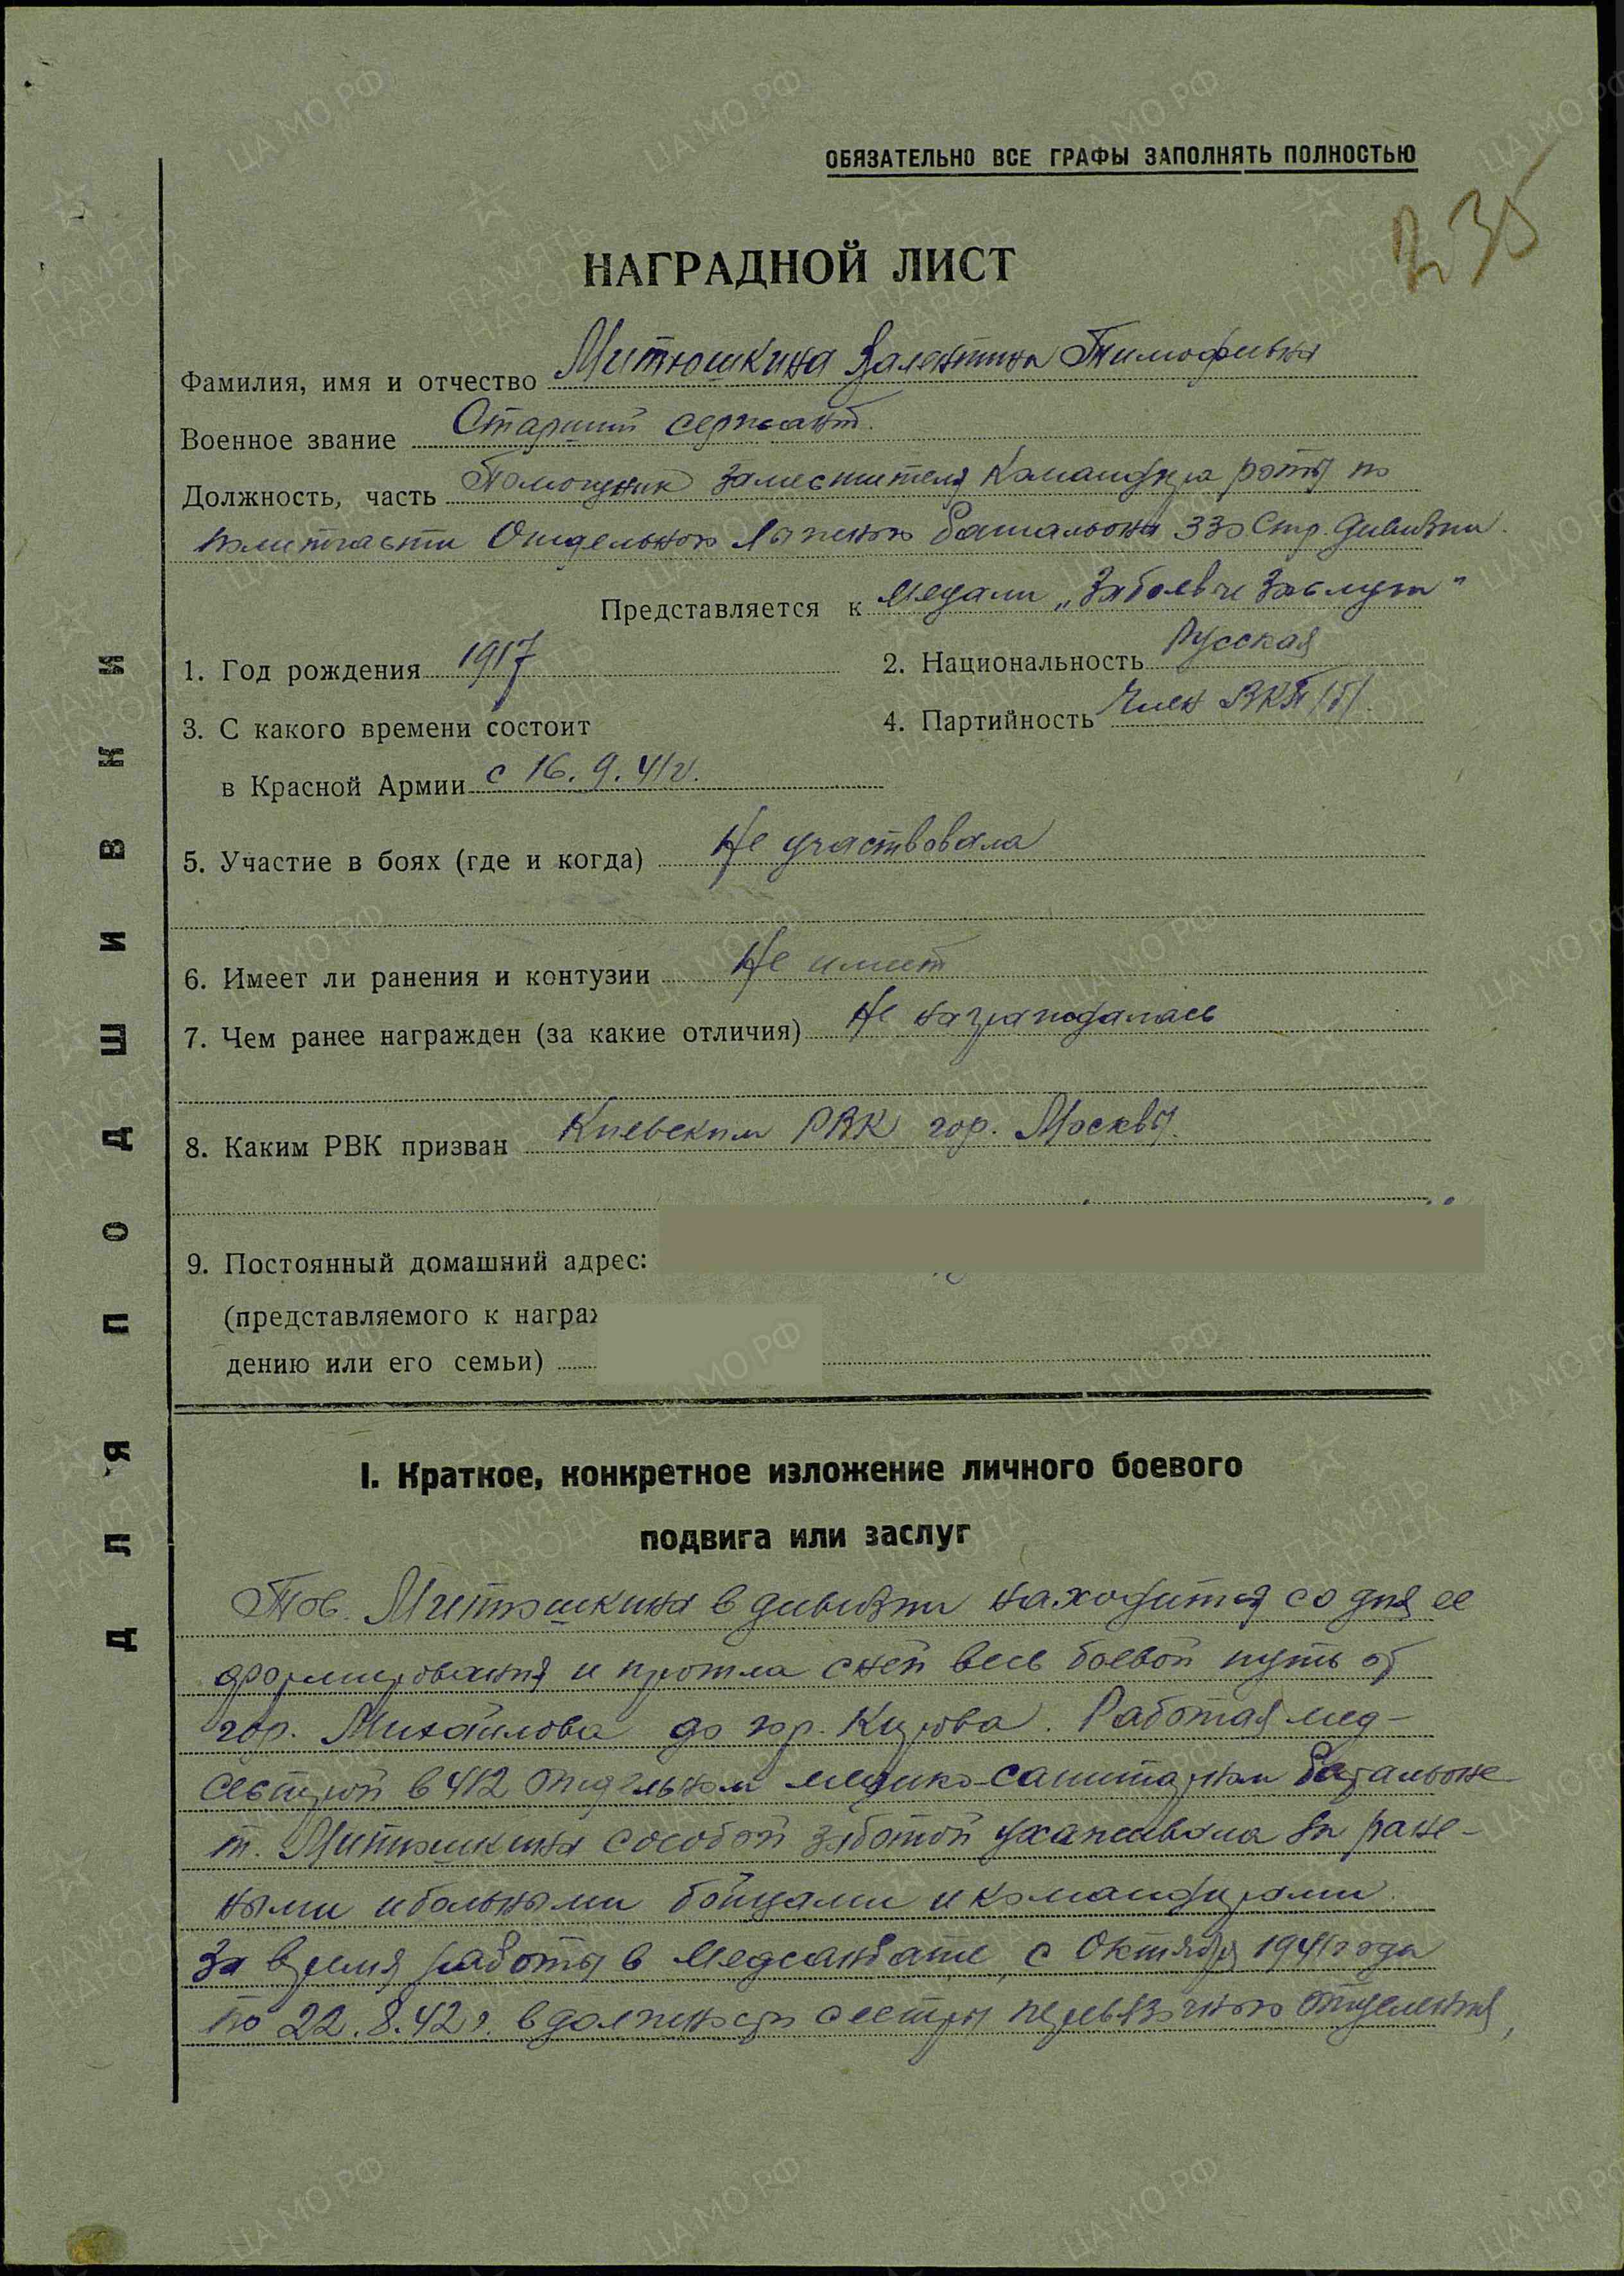 ОБЯЗАТЕЛЬНО ВСЕ ГРАФЫ ЗАПОЛНЯТЬ ПОЛНОСТЬЮ
235
НАГРАДНОЙ ЛИСТ
Фамилия, имя и отчество Митюшкина Валентина Тимофеевна
Военное звание Старший сержант.
Должность, часть Помощник заместителя командира роты по
политчасти Отдельного лыжного батальона 330 Стр. дивизии.
Представляется к медали „За боевые заслуги"
1. Год рождения 1917
2. Национальность Русская
3. С какого времени состоит
4. Партийность Член ВКП/б/.
в Красной Армии с 16.9.41г.
5. Участие в боях (где и когда) Не участвовала
6. Имеет ли ранения и контузии Не имеет
7. Чем ранее награжден (за какие отличия) Не награждалась
8. Каким РВК призван Киевским РВК гор. Москвы.
9. Постоянный домашний адрес:
(представляемого к награж
дению или его семьи)
I. Краткое, конкретное изложение личного боевого
подвига или заслуг
Тов. Митюшкина в дивизии находится со дня ее
формирования и прошла с ней весь боевой путь от
гор. Михайлова до гор. Кирова. Работая мед-
сестрой в 412 отдельном медико-санитарном батальоне
т. Митюшкина с особой заботой ухаживала за ране-
ными и больными бойцами и командирами.
За время работы в медсанбате, с Октября 1941 года
по 22.8.42г. в должности сестры перевязочного отделения,
ДЛЯ ПОДШИВКИ
ЦА МО РФ
ПАМЯТЬ НАРОДА